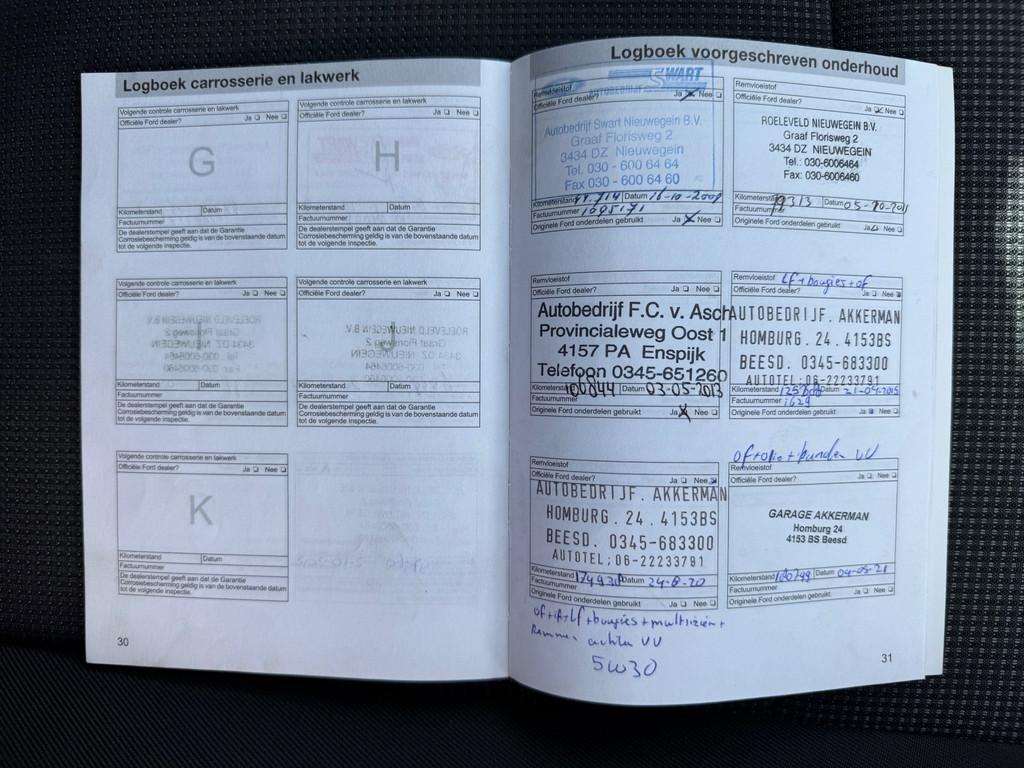 Logboek carrosserie en lakwerk
Volgende controle carrosserie en lakwerk
Officiële Ford dealer? Ja Nee
G
Kilometerstand Datum
Factuurnummer
De dealerstempel geeft aan dat de Garantie
Corrosiebescherming geldig is van de bovenstaande datum
tot de volgende inspectie.
Volgende controle carrosserie en lakwerk
Officiële Ford dealer? Ja Nee
H
Kilometerstand Datum
Factuurnummer
De dealerstempel geeft aan dat de Garantie
Corrosiebescherming geldig is van de bovenstaande datum
tot de volgende inspectie.
Volgende controle carrosserie en lakwerk
Officiële Ford dealer? Ja Nee
I
Kilometerstand Datum
Factuurnummer
De dealerstempel geeft aan dat de Garantie
Corrosiebescherming geldig is van de bovenstaande datum
tot de volgende inspectie.
Volgende controle carrosserie en lakwerk
Officiële Ford dealer? Ja Nee
J
Kilometerstand Datum
Factuurnummer
De dealerstempel geeft aan dat de Garantie
Corrosiebescherming geldig is van de bovenstaande datum
tot de volgende inspectie.
Volgende controle carrosserie en lakwerk
Officiële Ford dealer? Ja Nee
K
Kilometerstand Datum
Factuurnummer
De dealerstempel geeft aan dat de Garantie
Corrosiebescherming geldig is van de bovenstaande datum
tot de volgende inspectie.
30
Logboek voorgeschreven onderhoud
Remvloeistof
SWART
Officiële Ford dealer? Ja Nee
AUTOBEDRIJF
Autobedrijf Swart Nieuwegein B.V.
Graaf Florisweg 2
3434 DZ Nieuwegein
Tel. 030 - 600 64 64
Fax 030 - 600 64 60
Kilometerstand Datum 16-10-2009
Factuurnummer
Originele Ford onderdelen gebruikt Ja Nee
Remvloeistof
Officiële Ford dealer? Ja Nee
ROELEVELD NIEUWEGEIN B.V.
Graaf Florisweg 2
3434 DZ NIEUWEGEIN
Tel.: 030-6006464
Fax: 030-6006460
Kilometerstand Datum 05-10-2011
Factuurnummer
Originele Ford onderdelen gebruikt Ja Nee
Remvloeistof
Officiële Ford dealer? Ja Nee
Autobedrijf F.C. v. Asch
Provincialeweg Oost 1
4157 PA Enspijk
Telefoon 0345-651260
Kilometerstand 100844 Datum 03-05-2013
Factuurnummer
Originele Ford onderdelen gebruikt Ja Nee
Remvloeistof Lf + bougies + of
Officiële Ford dealer? Ja Nee
AUTOBEDRIJF. AKKERMAN
HOMBURG. 24. 4153BS
BEESD. 0345-683300
AUTOTEL: 06-22233791
Kilometerstand Datum 21-04-2015
Factuurnummer 1629
Originele Ford onderdelen gebruikt Ja Nee
Remvloeistof
Officiële Ford dealer? Ja Nee
AUTOBEDRIJF. AKKERMAN
HOMBURG. 24. 4153BS
BEESD. 0345-683300
AUTOTEL; 06-22233791
Kilometerstand 174930 Datum 24-8-20
Factuurnummer
Originele Ford onderdelen gebruikt Ja Nee
of + + Lf + bougies + multiriem +
Remmen achter VV
5W30
of + olie + banden VV
Remvloeistof
Officiële Ford dealer? Ja Nee
GARAGE AKKERMAN
Homburg 24
4153 BS Beesd
Kilometerstand 180799 Datum 04-05-21
Factuurnummer
Originele Ford onderdelen gebruikt Ja Nee
31